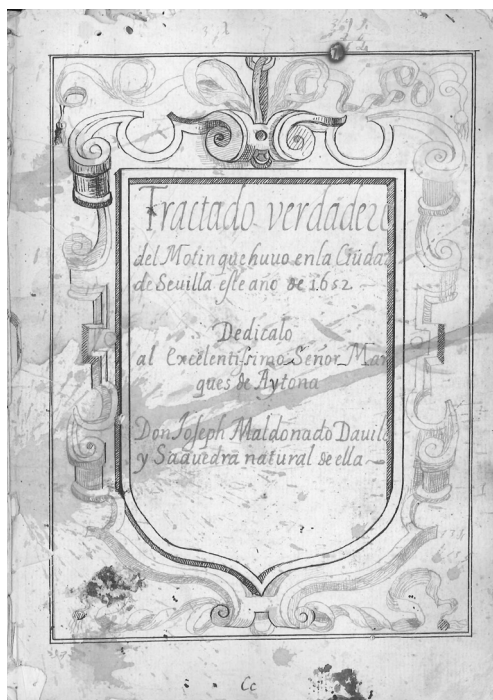 Tractado verdadero
del Motin que huuo en la Ciudad
de Seuilla este año de 1652
Dedicalo
al Excelentissimo Señor Mar
ques de Aytona
Don Joseph Maldonado Dauila
y Saauedra natural de ella
Cc